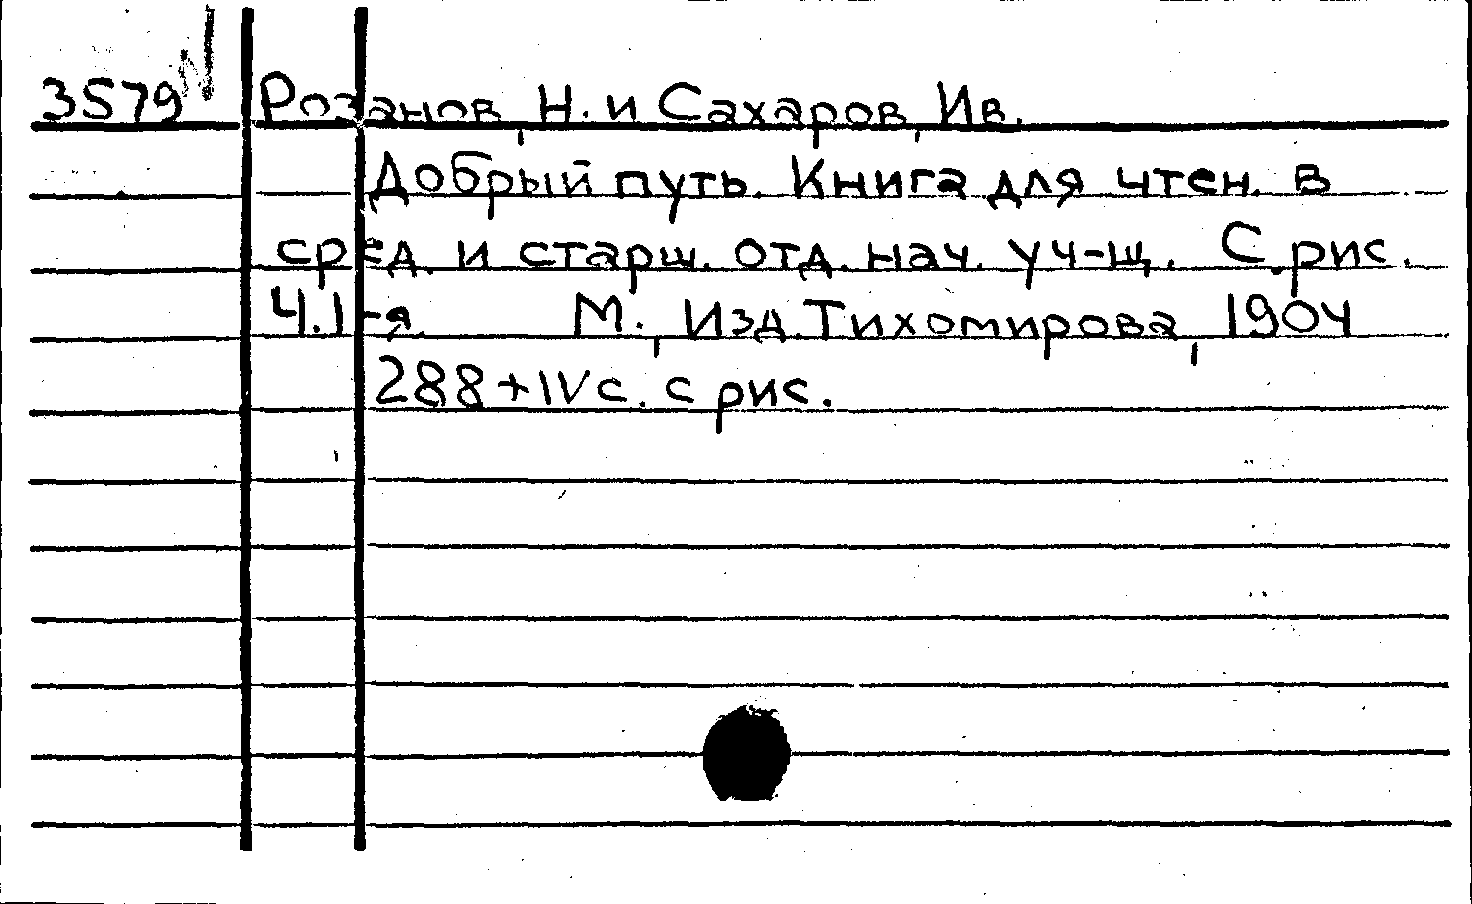 3579 Розанов, Н. и Сахаров, Ив.
Добрый путь. Книга для чтен. в
сред. и старш. отд. нач. уч-щ. С рис.
Ч. I-я. М., Изд. Тихомирова, 1904
288+IV с. с рис.